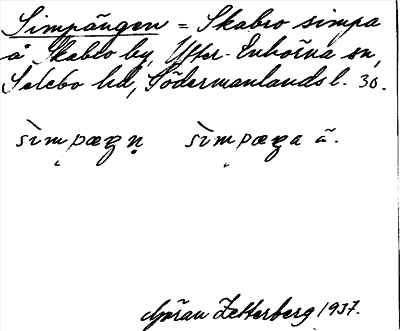 Simpängen = Skabro simpa
å Skabro by, Ytter-Enhörna sn,
Selebo hd, Södermanlands l. 30.
sìmpæŋn̥ sìmpæŋa ä̃.
Göran Zetterberg 1937.